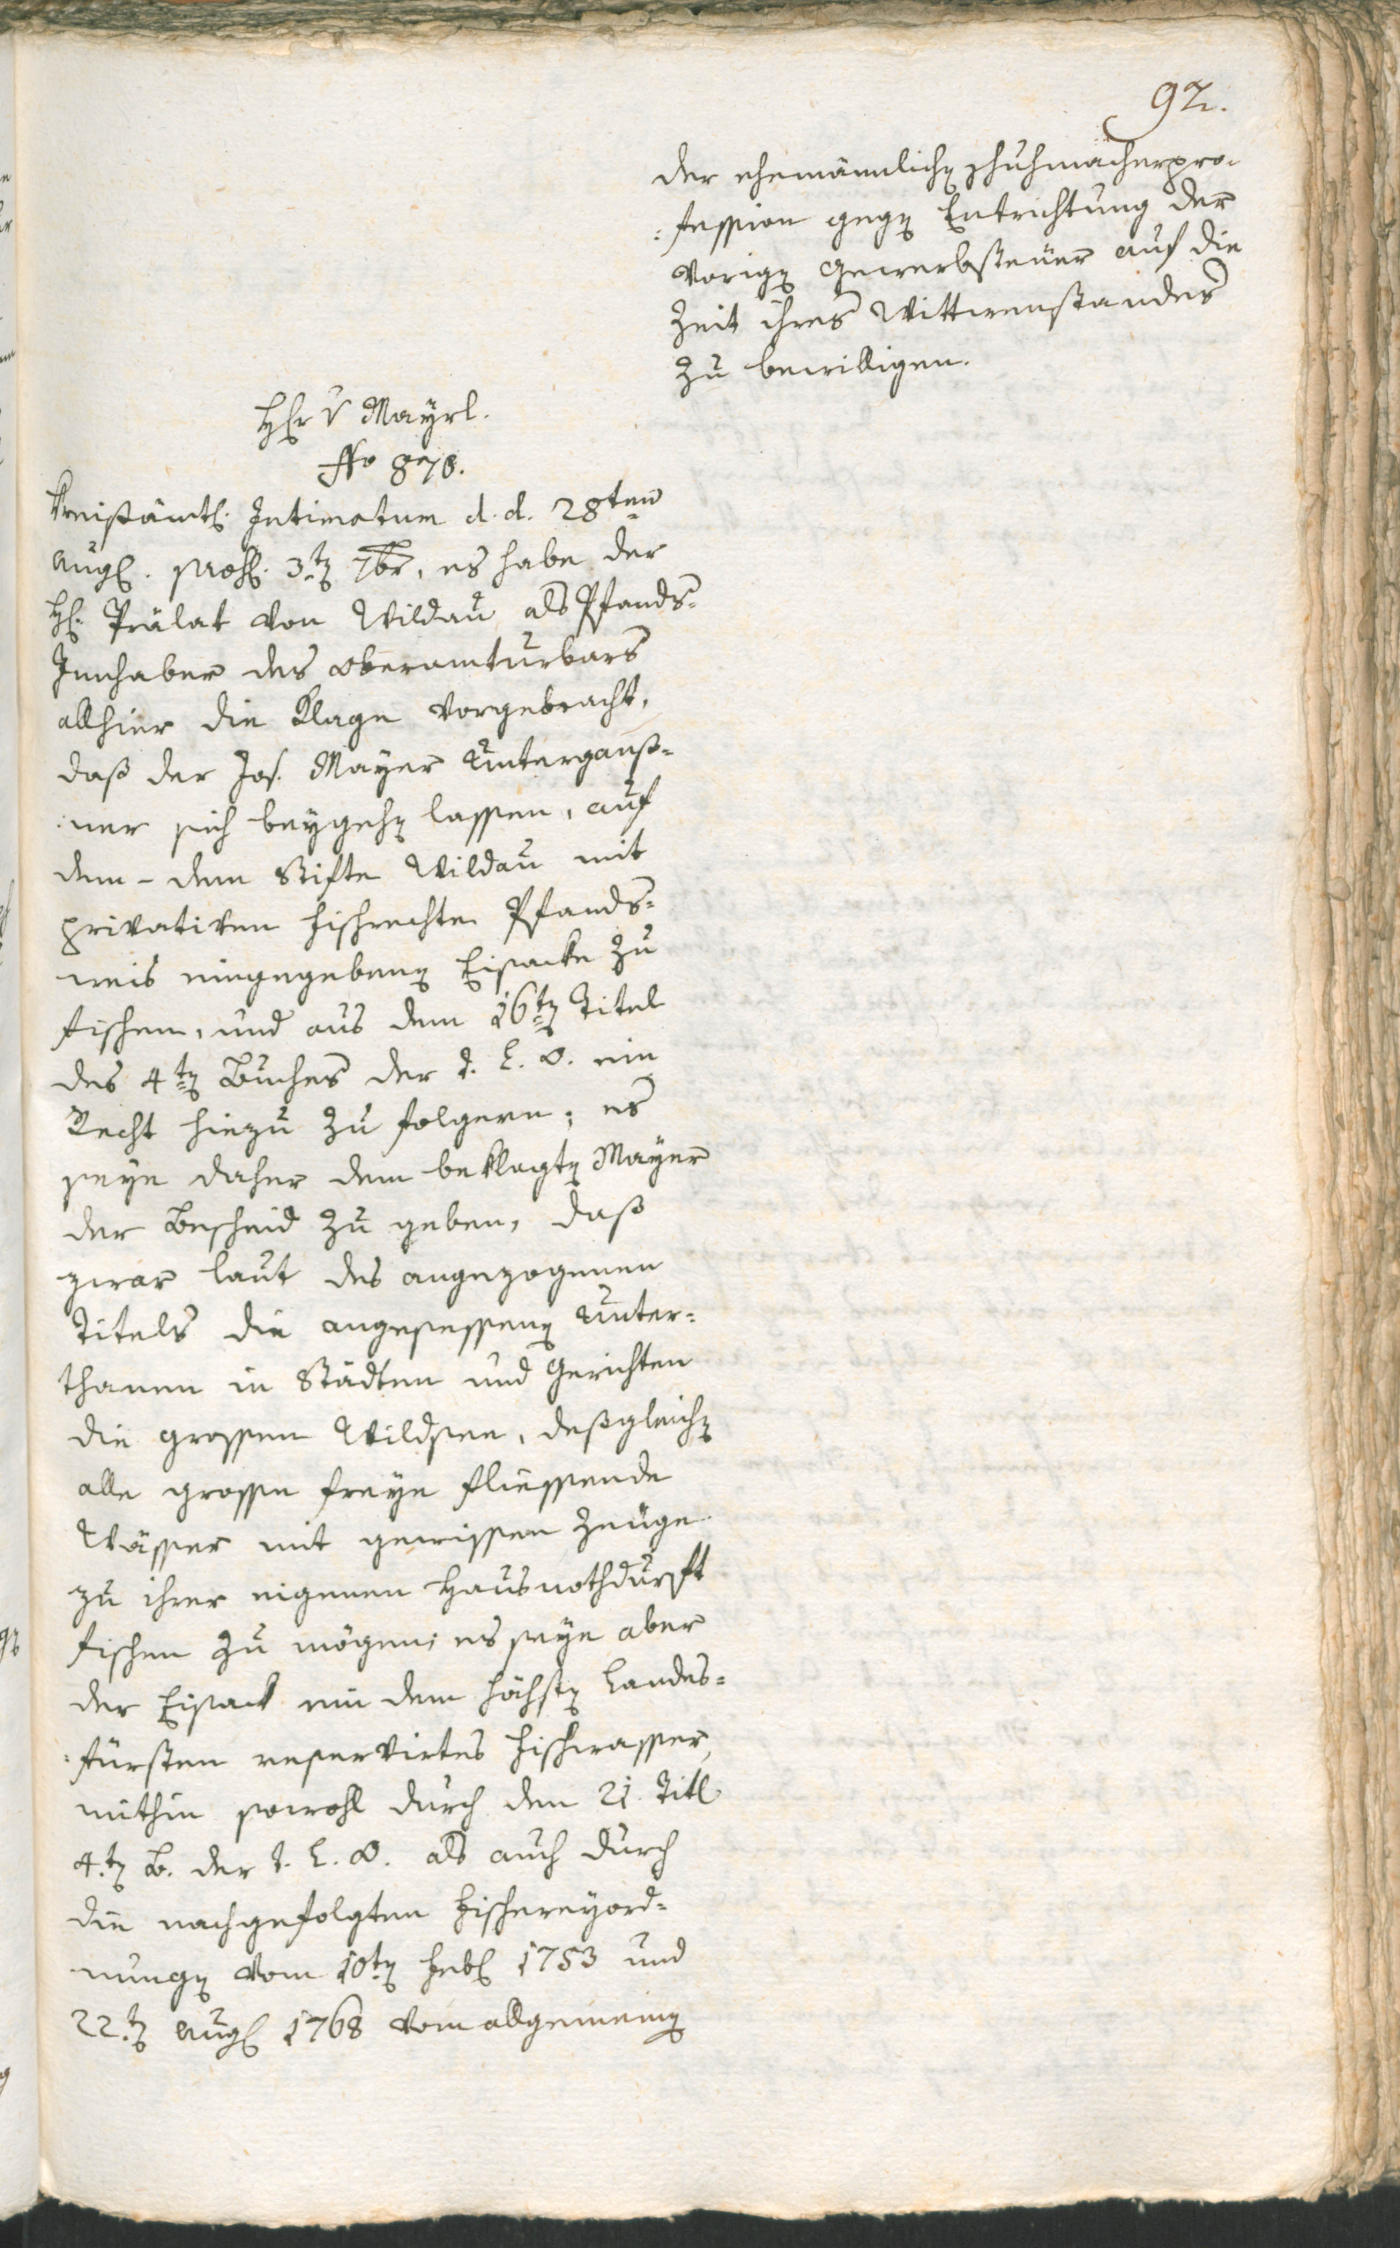 92.
der ehemännlich[en] Schuhmacherpro-
:fession geg[en] Entrichtung der
vorig[en] Gewerbsteuer auf die
Zeit ihres Wittwenstandes
zu bewilligen.
H[er]r v Mayrl.
No 870.
Kreisämtl. Intimatum d. d. 28ten
Aug[ust]. pros. 3t[en] 7br, es habe der
H. Prälat von Wildau als Pfands-
Innhaber des oberamturbars
allhier die Klage vorgebracht,
daß der Jos. Mayer Unterganß-
:ner sich beygeh[en] lassen, auf
dem - dem Stifte Wildau mit
privativen Fischrechte Pfands-
weis eingegeben[en] Eisacke zu
fischen, und aus dem 16t[en] Titel
des 4t[en] Buches der t. L. O. ein
Recht hiezu zu folgern; es
seye daher dem beklagt[en] Mayer
der Bescheid zu geben, daß
zwar laut des angezogenen
Titels die angesessen[en] Unter-
thanen in Städten und Gerichten
die grossen Wildseen, deßgleich[en]
alle grosse freye fliessende
Wässer mit gewissen Zeüge
zu ihrer eigenen Hausnothdurft
fischen zu mögen; es seye aber
der Eisack ein dem höchst[en] Landes-
:fürsten reservirtes Fischwasser,
mithin sowohl durch den 21. Titl
4.t[en] B. der t. L. O. als auch durch
die nachgefolgten Fischereyord-
nung[en] vom 10t[en] Feb[ruar] 1753 und
22.t[en] Aug[ust] 1768 vom allgemein[en]